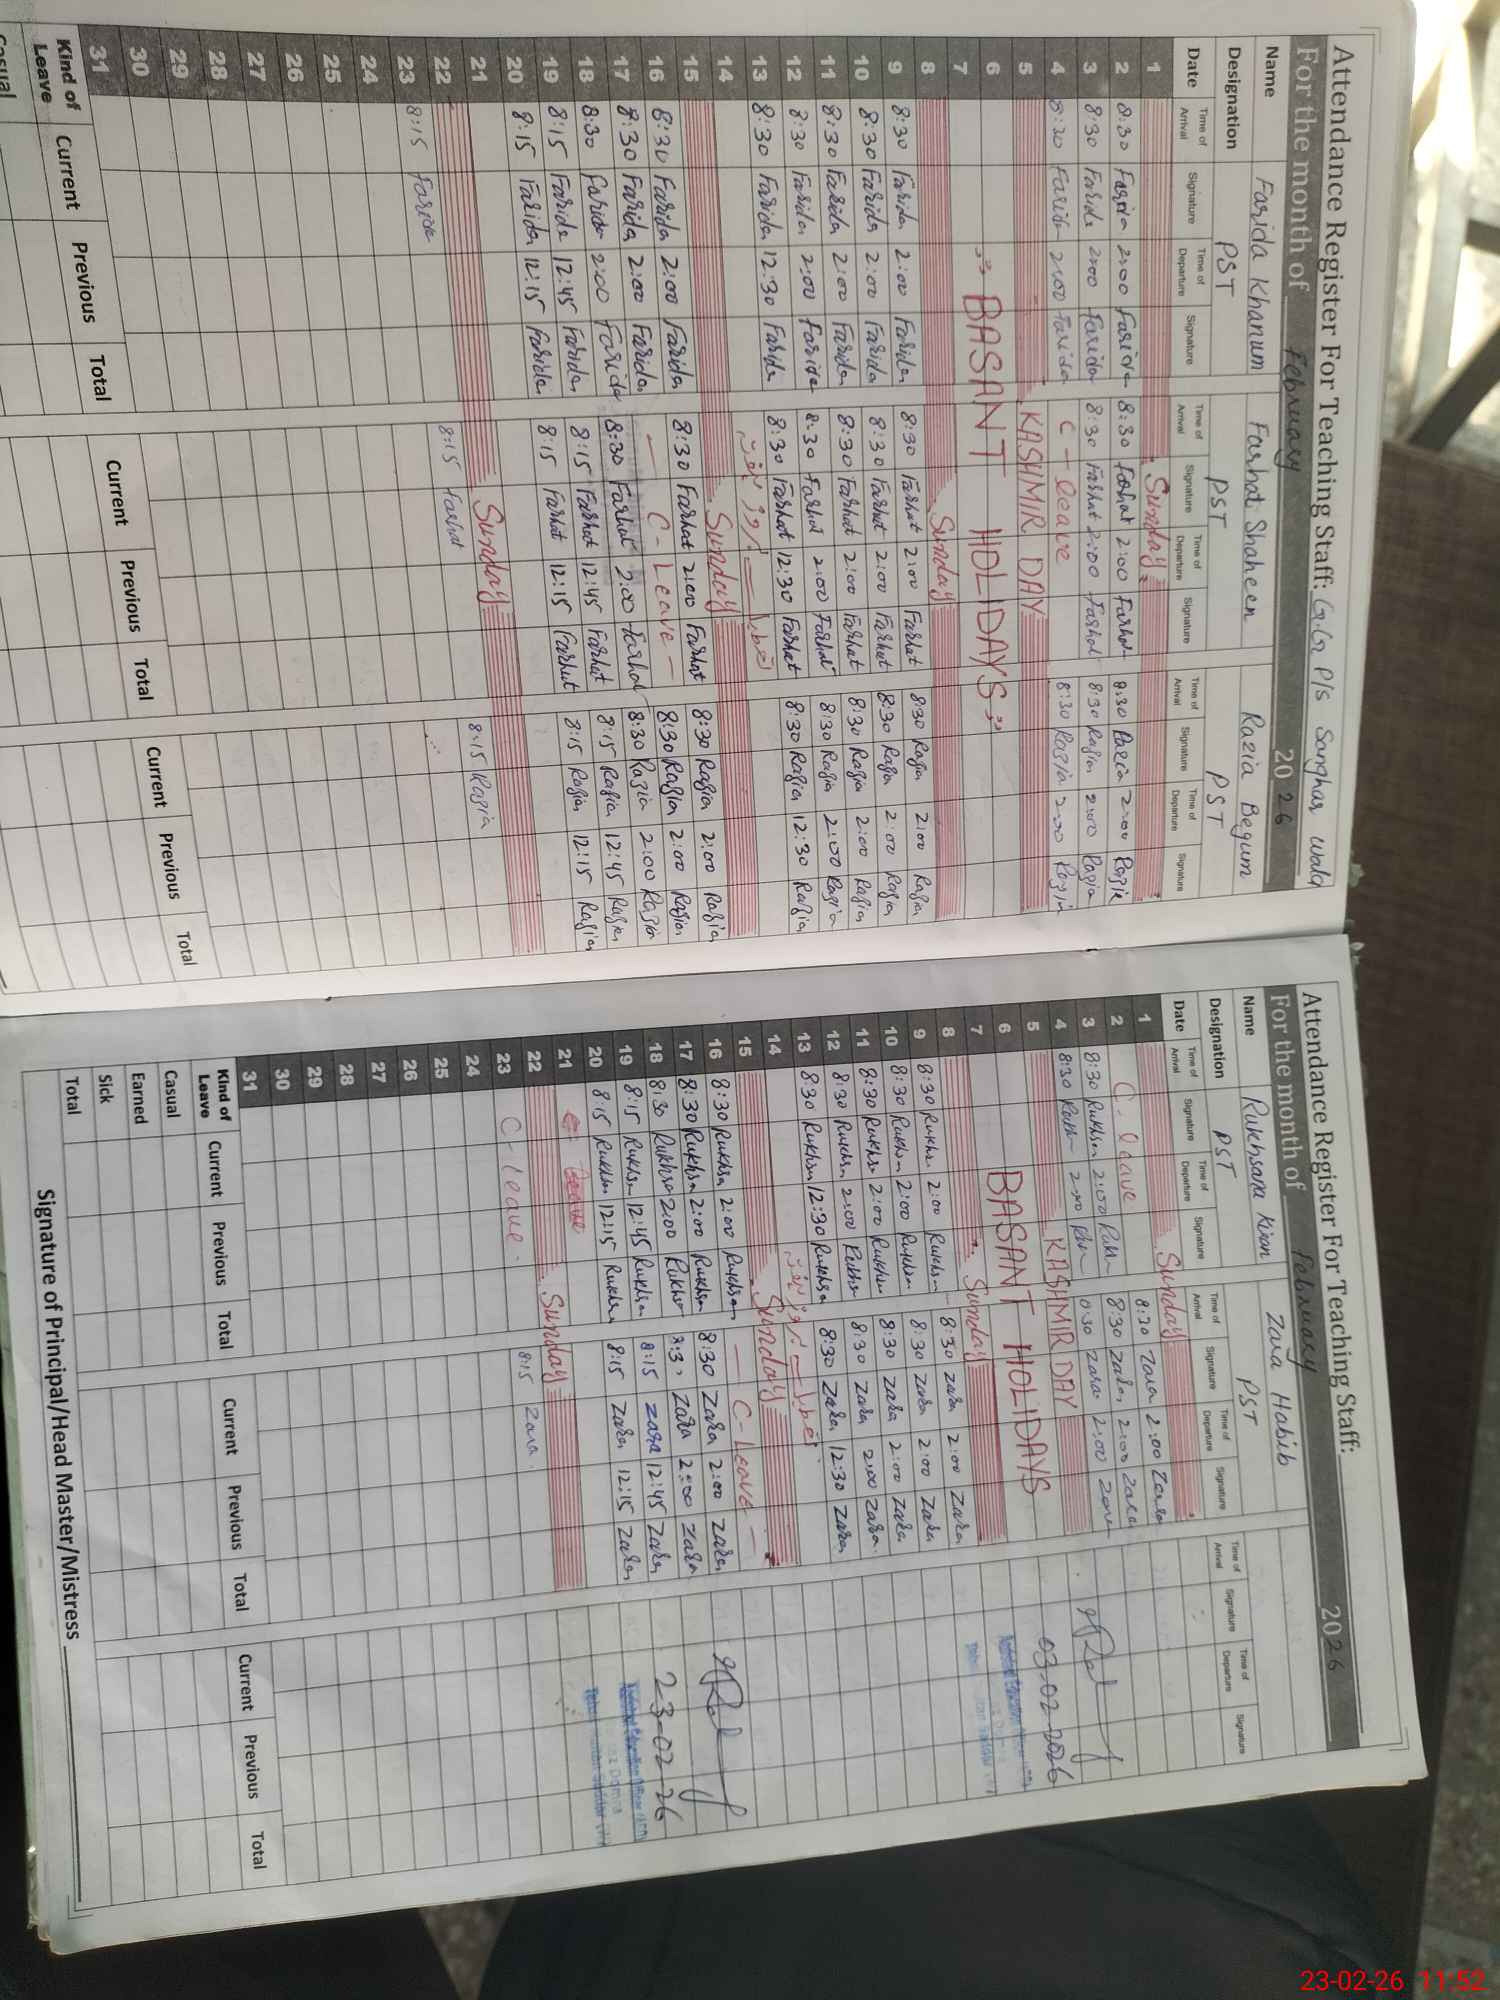 Attendance Register For Teaching Staff: G.G P/S Sanghar Wala
For the month of February 2026
Name Farida Khanum Farhat Shaheen Razia Begum
Designation PST PST PST
Date Time of Arrival Signature Time of Departure Signature Time of Arrival Signature Time of Departure Signature Time of Arrival Signature Time of Departure Signature
1 Sunday
2 8:30 Farida 2:00 Farida 8:30 Farhat 2:00 Farhat 8:30 Razia 2:00 Razia
3 8:30 Farida 2:00 Farida 8:30 Farhat 2:00 Farhat 8:30 Razia 2:00 Razia
4 8:30 Farida 2:00 Farida C-leave 8:30 Razia 2:00 Razia
5 KASHMIR DAY
6 "BASANT HOLIDAYS"
7
8 Sunday
9 8:30 Farida 2:00 Farida 8:30 Farhat 2:00 Farhat 8:30 Razia 2:00 Razia
10 8:30 Farida 2:00 Farida 8:30 Farhat 2:00 Farhat 8:30 Razia 2:00 Razia
11 8:30 Farida 2:00 Farida 8:30 Farhat 2:00 Farhat 8:30 Razia 2:00 Razia
12 8:30 Farida 2:00 Farida 8:30 Farhat 2:00 Farhat 8:30 Razia 2:00 Razia
13 8:30 Farida 12:30 Farida 8:30 Farhat 12:30 Farhat 8:30 Razia 12:30 Razia
14
15 Sunday
16 8:30 Farida 2:00 Farida 8:30 Farhat 2:00 Farhat 8:30 Razia 2:00 Razia
17 8:30 Farida 2:00 Farida C-Leave 8:30 Razia 2:00 Razia
18 8:30 Farida 2:00 Farida 8:30 Farhat 2:00 Farhat 8:30 Razia 2:00 Razia
19 8:15 Farida 12:45 Farida 8:15 Farhat 12:45 Farhat 8:15 Razia 12:45 Razia
20 8:15 Farida 12:15 Farida 8:15 Farhat 12:15 Farhat 8:15 Razia 12:15 Razia
21
22 Sunday
23 8:15 Farida 8:15 Farhat 8:15 Razia
24
25
26
27
28
29
30
31
Kind of Leave Current Previous Total Current Previous Total Current Previous Total
Casual
Attendance Register For Teaching Staff:
For the month of February 2026
Name Rukhsana Kiran Zara Habib
Designation PST PST
Date Time of Arrival Signature Time of Departure Signature Time of Arrival Signature Time of Departure Signature Time of Arrival Signature Time of Departure Signature
1 Sunday
2 C. leave 8:30 Zara 2:00 Zara
3 8:30 Rukhsa 2:00 8:30 Zara 2:00 Zara
4 8:30 2:00 8:30 Zara 2:00 Zara
03-02-2026
5 KASHMIR DAY
6 BASANT HOLIDAYS
7
8 Sunday
9 8:30 Rukhsa 2:00 Rukhsa 8:30 Zara 2:00 Zara
10 8:30 Rukhsa 2:00 Rukhsa 8:30 Zara 2:00 Zara
11 8:30 Rukhsa 2:00 Rukhsa 8:30 Zara 2:00 Zara
12 8:30 Rukhsa 2:00 Rukhsa 8:30 Zara 2:00 Zara
13 8:30 Rukhsa 12:30 Rukhsa 8:30 Zara 12:30 Zara
14
15 Sunday
16 8:30 Rukhsa 2:00 Rukhsa C-Leave
17 8:30 Rukhsa 2:00 Rukhsa 8:30 Zara 2:00 Zara
18 8:30 Rukhsa 2:00 Rukhsa 8:30 Zara 2:00 Zara
19 8:15 Rukhsa 12:45 Rukhsa 8:15 Zara 12:45 Zara
23-02-26
20 8:15 Rukhsa 12:15 Rukhsa 8:15 Zara 12:15 Zara
21 leave
22 Sunday
23 C-leave. 8:15 Zara.
24
25
26
27
28
29
30
31
Kind of Leave Current Previous Total Current Previous Total Current Previous Total
Casual
Earned
Sick
Total
Signature of Principal/Head Master/Mistress
23-02-26 11:52